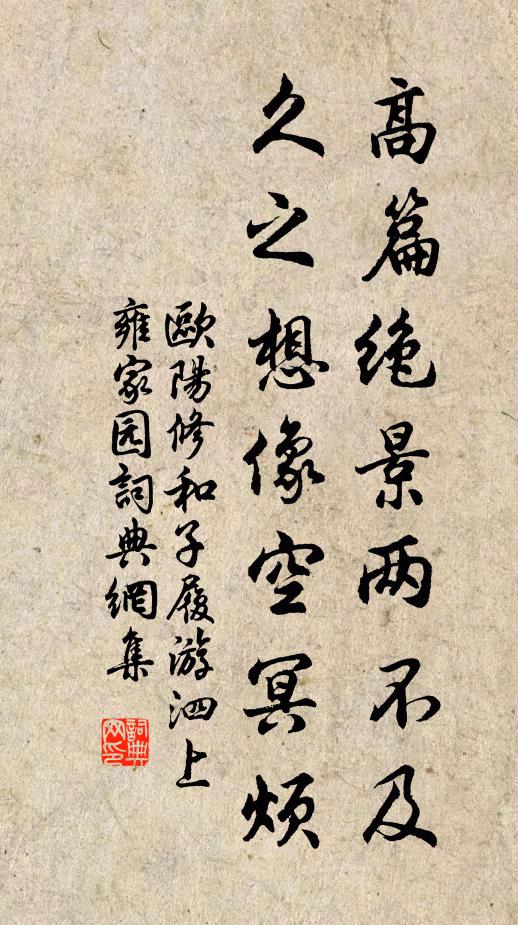 高篇绝景两不及
久之想像空冥烦
歐陽修和子履游泗上
雍家园詞典網集
詞典
网印